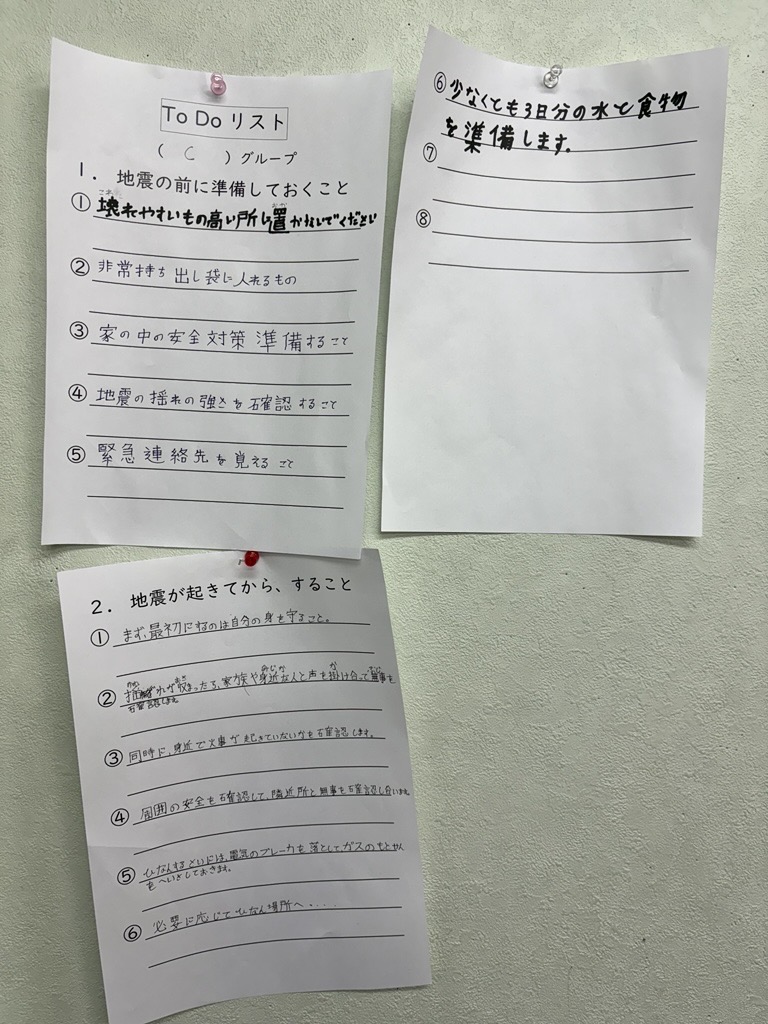 To Do リスト
( C ) グループ
1. 地震の前に準備しておくこと
① 壊れやすいもの高い所に置かないでください
② 非常持ち出し袋に入れるもの
③ 家の中の安全対策準備すること
④ 地震の揺れの強さを確認すること
⑤ 緊急連絡先を覚えること
⑥ 少なくとも3日分の水と食物
を準備します。
⑦
⑧
2. 地震が起きてから、すること
① まず、最初にするのは自分の身を守ること。
② 揺れが収まったら、家族や身近な人と声を掛け合って無事を
確認します
③ 同時に、身近で火事が起きていないかを確認します。
④ 周囲の安全を確認して、隣近所と無事を確認し合います
⑤ ひなんするさいには、電気のブレーカを落として、ガスのもとせん
をへいさしておきます。
⑥ 必要に応じてひなん場所へ・・・・